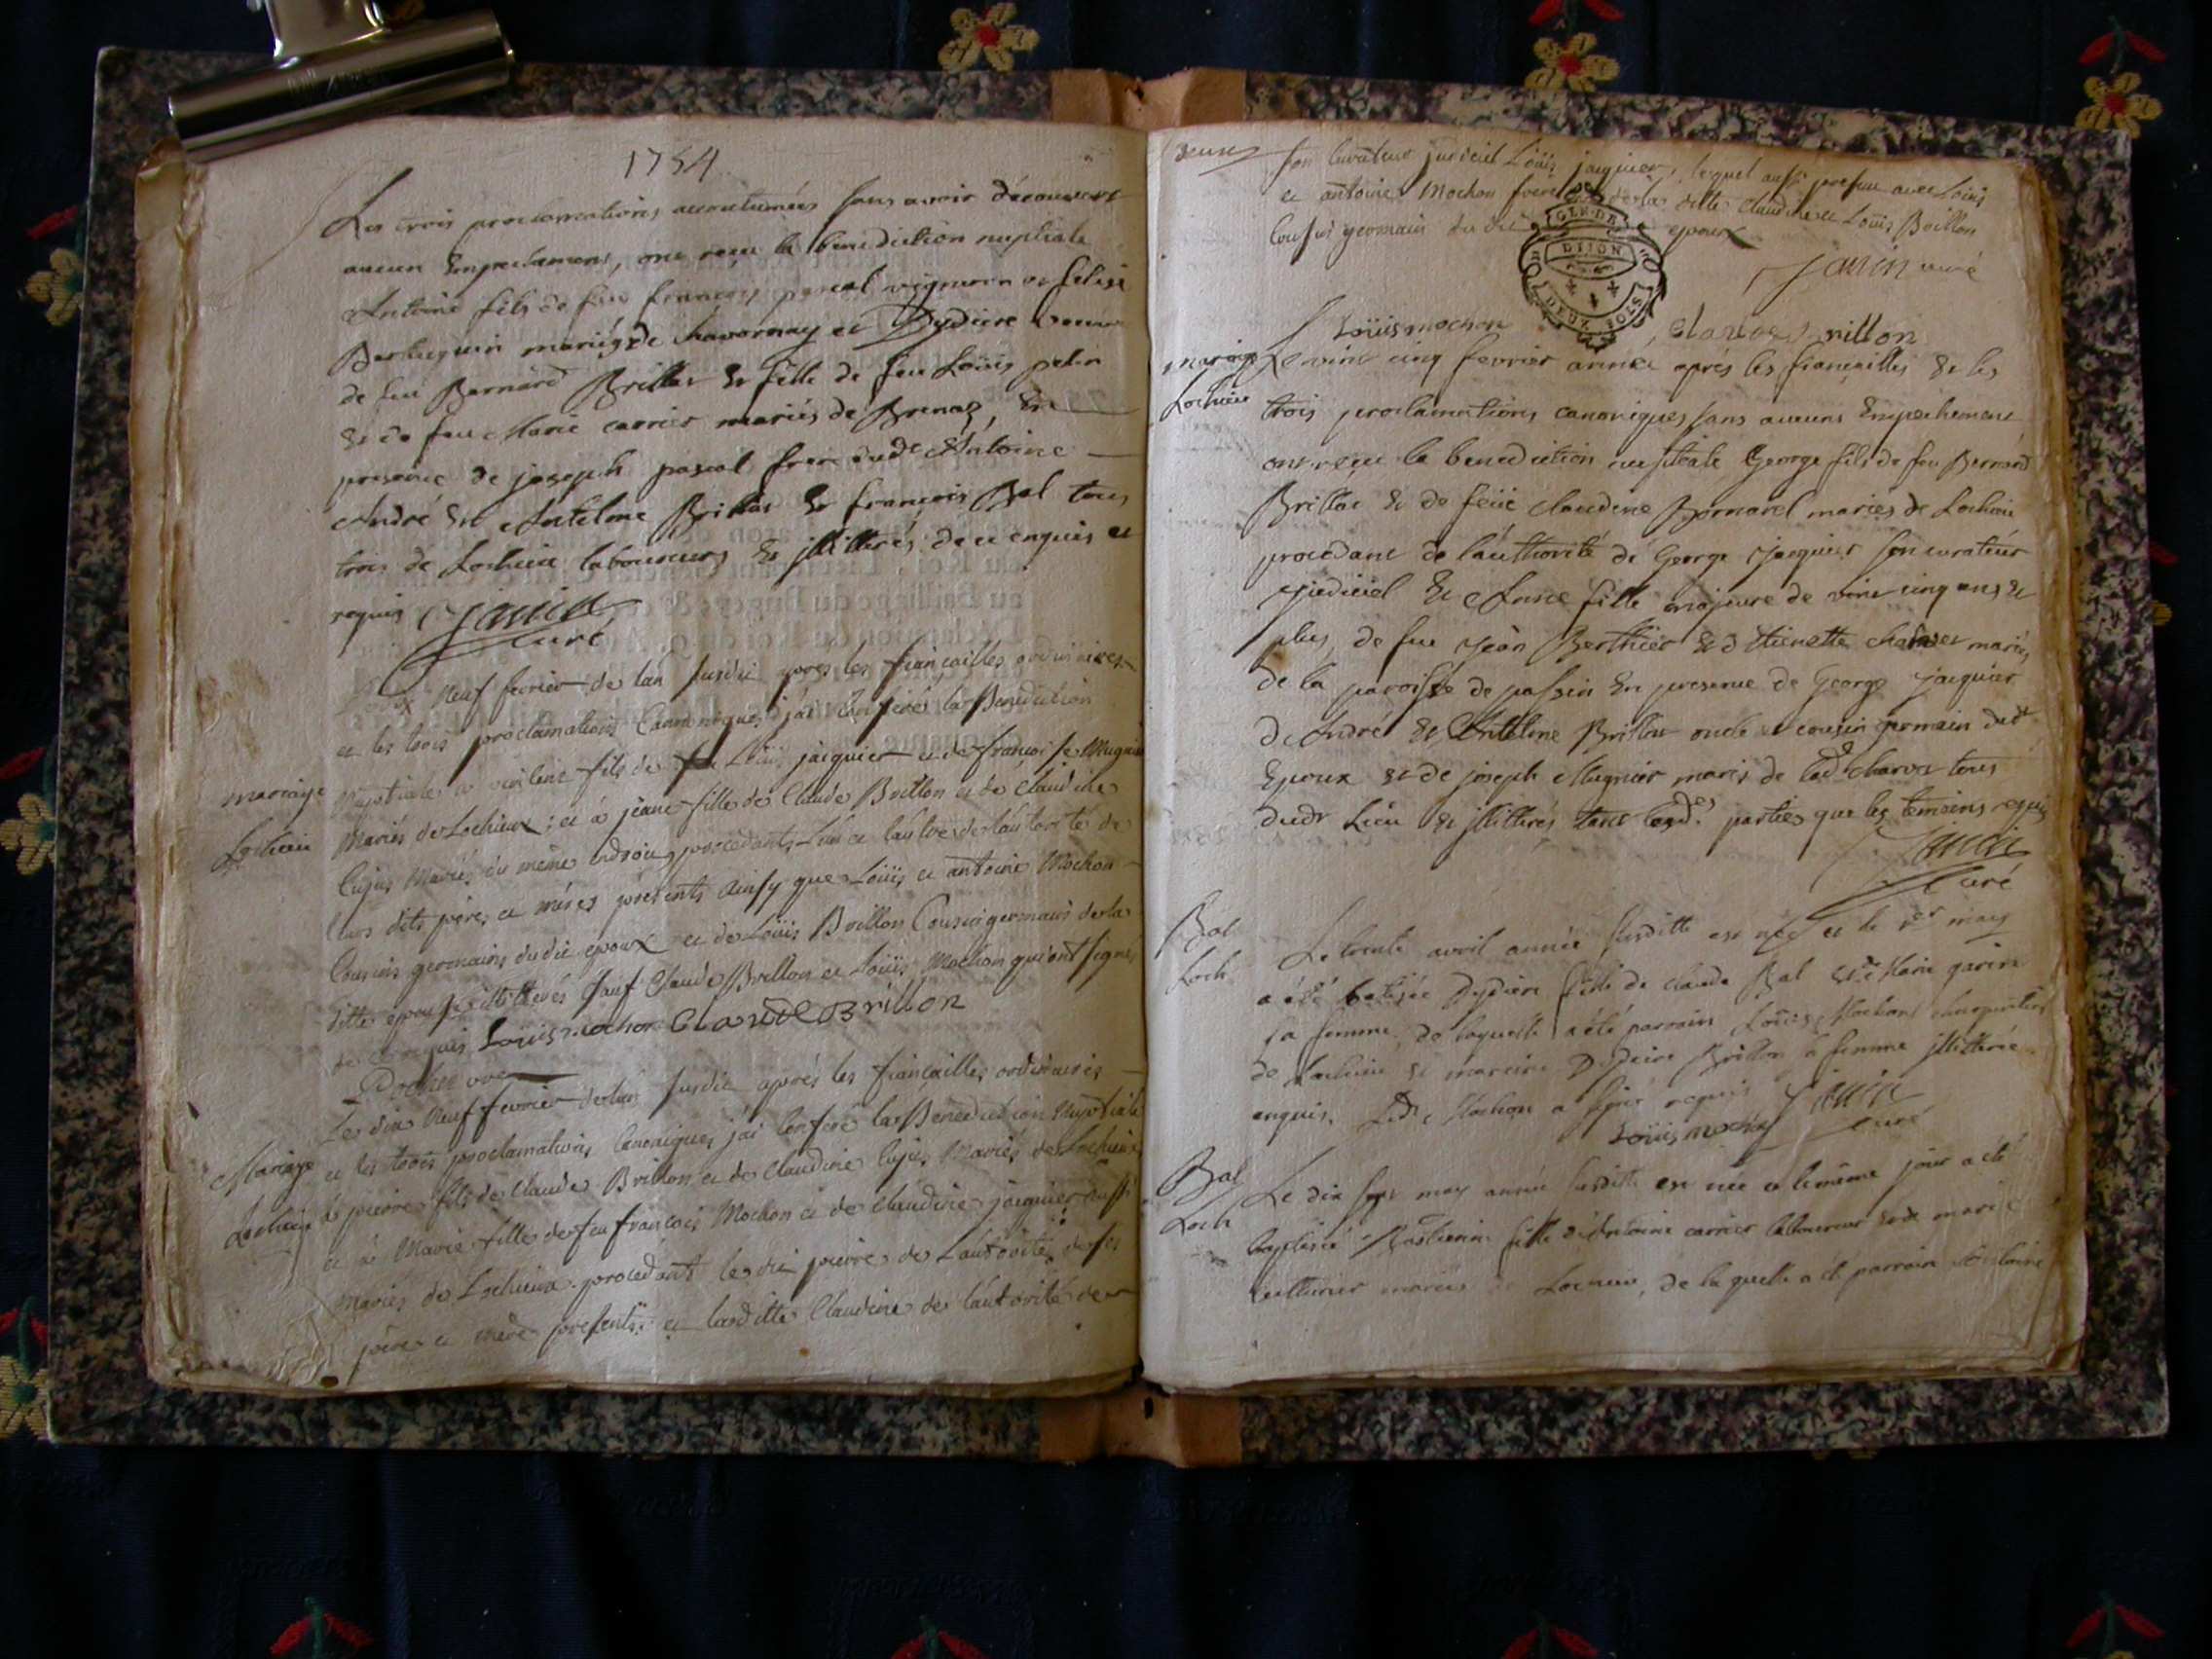 1754
Les trois proclamations accoutumées sans avoir découvert
aucun Empechement, ont reçu la benediction nuptiale
Antoine fils de feu françois pascal vigneron et
mariés de chavornay et Dydiere veuve
de feu Bernard Brillat & fille de feu Loüis
& de feu Marie carrier mariés de Brenaz, En
presence de joseph pascal frere dudt Antoine
André & Antelme Brillat & françois Bal tous
trois de Lochieu laboureurs & jllitterés de ce enquis et
requis Janin
curé
neuf fevrier de lan susdit apres les fiançailles ordinaires
et les trois proclamations Canoniques jai Conferés la Benediction
mariage Nuptiale a fils de feu Loüis jacquier et de françoise Mugnier
Lochieu Mariés de Lochieux ; et à jeane fille de Claude Brillon et de Claudine
Cujus Mariés du même endroit, procedants Lun et lautre de lautorité de
leurs dits peres et meres presents Ainsy que Loüis et antoine Mochon
Cousins germains dudit epoux et de Loüis Brillon Cousin germain de la
ditte epouse illitterés sauf Claude Brillon et Loüis Mochon qui ont signés
de ce requis Loüis mochon Claude Brillon
Le dix Neuf fevrier de lan susdit aprés les fiançailles ordinaires
Mariage et les trois proclamations Canoniques jai Conferé la Benediction Nuptiale
Lochieu à pierre fils de Claude Brillon et de Claudine Cujus Mariés de Lochieux
et à Marie fille de feu françois Mochon et de Claudine jacquier aussi
Mariés de Lochieux procedant le dit pierre de Lautorité de ses
pere et mere presents et laditte Claudine de lautorité de
son Curateur judiciel Loüis jacquier, lequel aussi present avec Loüis
et antoine Mochon freres de la ditte Claudine et Loüis Brillon
Cousin germain dudit epoux
GEN DE
DIJON
DEUX SOLS
Janin curé
Loüis mochon Claude Brillon
mariage Le vint cinq fevrier année aprés les fiançailles & les
Lochieu trois proclamations canoniques sans aucuns Empechement
ont reçu la benediction nuptiale George fils de feu Bernard
Brillat & de feüe claudine Bornarel mariés de Lochieu
procedant de l'authorité de George Jacquier son curateur
judiciel & Anne fille majeure de vint cinq ans &
plus, de feu Jean Berthier & d'Etienette charvet mariés
de la paroisse de passin En presence de George jacquier
d'André & Antelme Brillat oncle et cousin germain dudt
Epoux & de joseph Mugnier maris de ladte charvet tous
dudt Lieu & jllitterés tant lesdtes parties que les temoins requis
Janin
curé
Bal Le trente avril année susditte est née et le 1er may
Loch a été batisée Dydiere fille de claude Bal & de Marie garin
sa femme, de laquelle a été parrain Loüis Mochon charpentier
de Lochieu & marraine Dydiere Brillon sa femme jllitterée
enquis. Ledt Mochon a signé requis Janin
Loüis mochon curé
Bal Le dix sept may année susditte est née et le même jour a été
Loch baptisée Bastienne fille d'Antoine carrier laboureur & de marie
mariés de Lochieu, de laquelle a été parrain Antoine